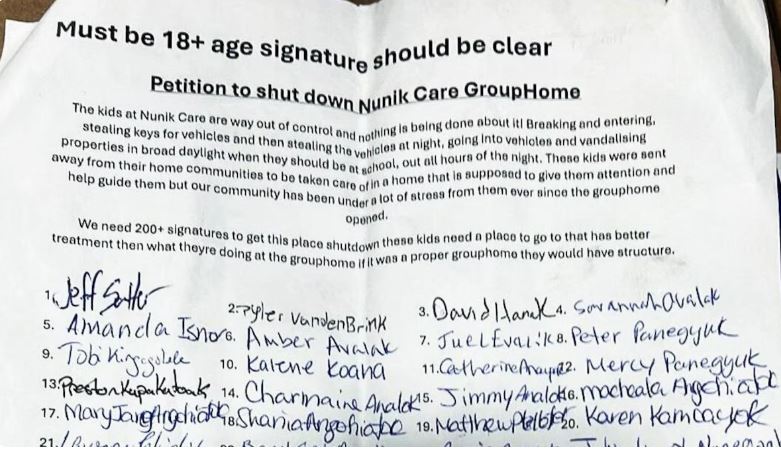 Must be 18+ age signature should be clear
Petition to shut down Nunik Care GroupHome
The kids at Nunik Care are way out of control and nothing is being done about it! Breaking and entering,
stealing keys for vehicles and then stealing the vehicles at night, going into vehicles and vandalising
properties in broad daylight when they should be at school, out all hours of the night. These kids were sent
away from their home communities to be taken care of in a home that is supposed to give them attention and
help guide them but our community has been under a lot of stress from them ever since the grouphome
opened.
We need 200+ signatures to get this place shutdown these kids need a place to go to that has better
treatment then what theyre doing at the grouphome if it was a proper grouphome they would have structure.
1. Jeff 2. Tyler VandenBrink 3. David Hanak 4. Savannah Ovalak
5. Amanda 6. Amber Avalak 7. Juel Evalik 8. Peter Panegyuk
9. Tobi 10. Karene Koana 11. Catherine 12. Mercy Panegyuk
13. Preston 14. Charmaine Analok 15. Jimmy Analok 16.
17. Mary Jane 18. Shania 19. Matthew 20. Karen Kamoayok
21.